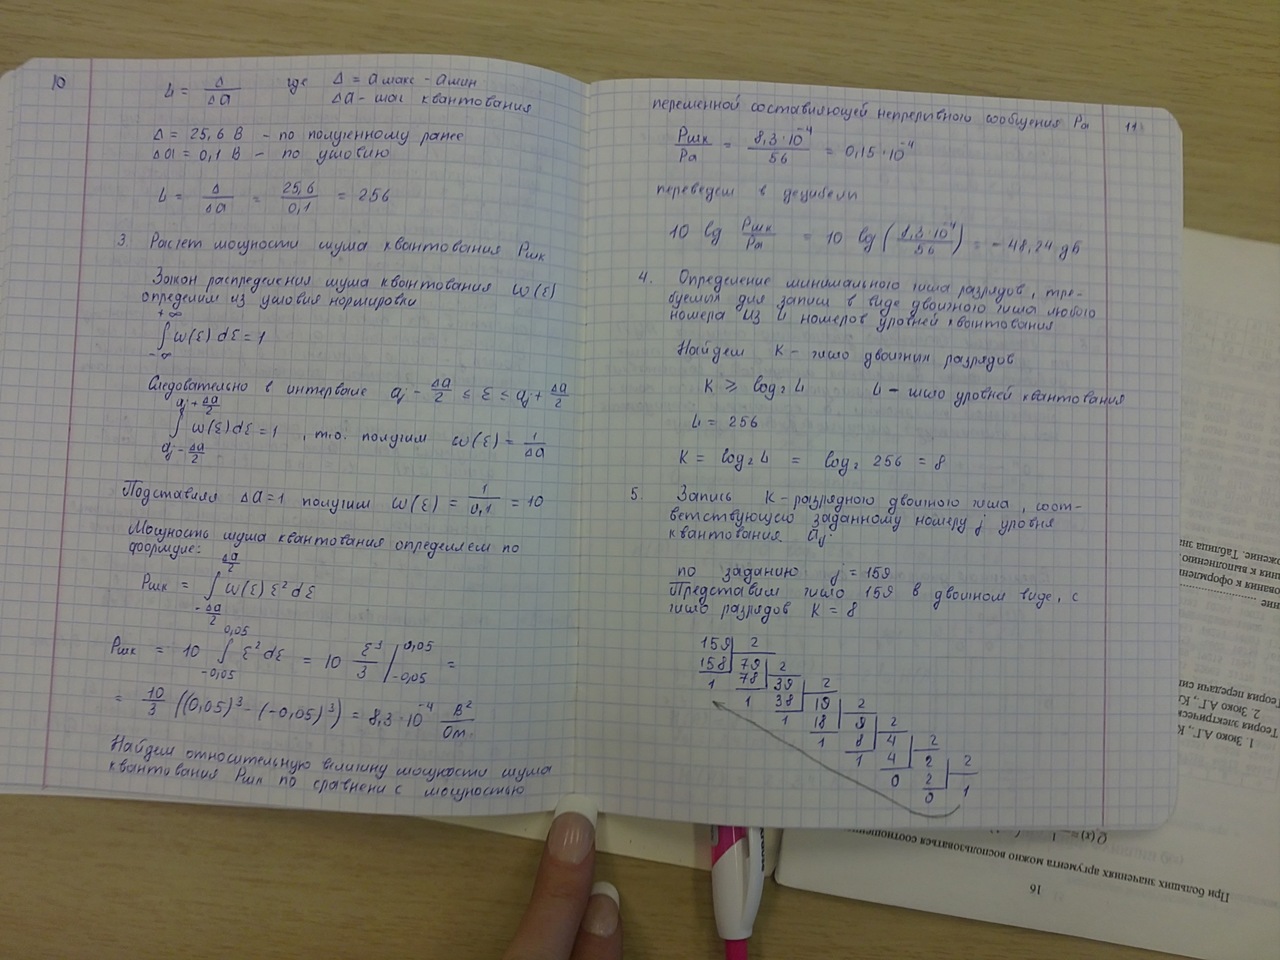 10
L = Δ/Δa где Δ = aмакс - aмин
Δa - шаг квантования
Δ = 25,6 В - по полученному ранее
Δa = 0,1 В - по условию
L = Δ/Δa = 25,6/0,1 = 256
3. Расчет мощности шума квантования Pшк
Закон распределения шума квантования ω(ε)
определим из условия нормировки
∫_{-∞}^{+∞} ω(ε) dε = 1
Следовательно в интервале aj - Δa/2 ≤ ε ≤ aj + Δa/2
∫_{aj - Δa/2}^{aj + Δa/2} ω(ε)dε = 1 , т.о. получим ω(ε) = 1/Δa
Подставляя Δa=1 получим ω(ε) = 1/0,1 = 10
Мощность шума квантования определяем по
формуле:
Pшк = ∫_{-Δa/2}^{Δa/2} ω(ε) ε² dε
Pшк = 10 ∫_{-0,05}^{0,05} ε² dε = 10 ε³/3 |_{-0,05}^{0,05} =
= 10/3 ((0,05)³ - (-0,05)³) = 8,3·10⁻⁴ В²/Ом.
Найдем относительную величину мощности шума
квантования Pшк по сравнени с мощностью
11
переменной составляющей непрерывного сообщения Pa
Pшк/Pa = 8,3·10⁻⁴/56 = 0,15·10⁻⁴
переведем в децибелы
10 lg Pшк/Pa = 10 lg (8,3·10⁻⁴/56) = - 48,24 дб
4. Определение минимального числа разрядов, тре-
буемых для записи в виде двоичного числа любого
номера из L номеров уровней квантования
Найдем K - число двоичных разрядов
K ≥ log₂ L L - число уровней квантования
L = 256
K = log₂ L = log₂ 256 = 8
5. Запись K - разрядного двоичного числа, соот-
ветствующую заданному номеру j уровня
квантования aj.
по заданию j = 159
Представим число 159 в двоичном виде, с
число разрядов K = 8
159 2
158 79 2
1 78 39 2
1 38 19 2
1 18 9 2
1 8 4 2
1 4 2 2
0 2 1
0
16
При больших значениях аргумента можно воспользоваться соотношени
1. Зюко А.Г., К
Теория электрическ
2. Зюко А.Г., Кл
Теория передачи сиг